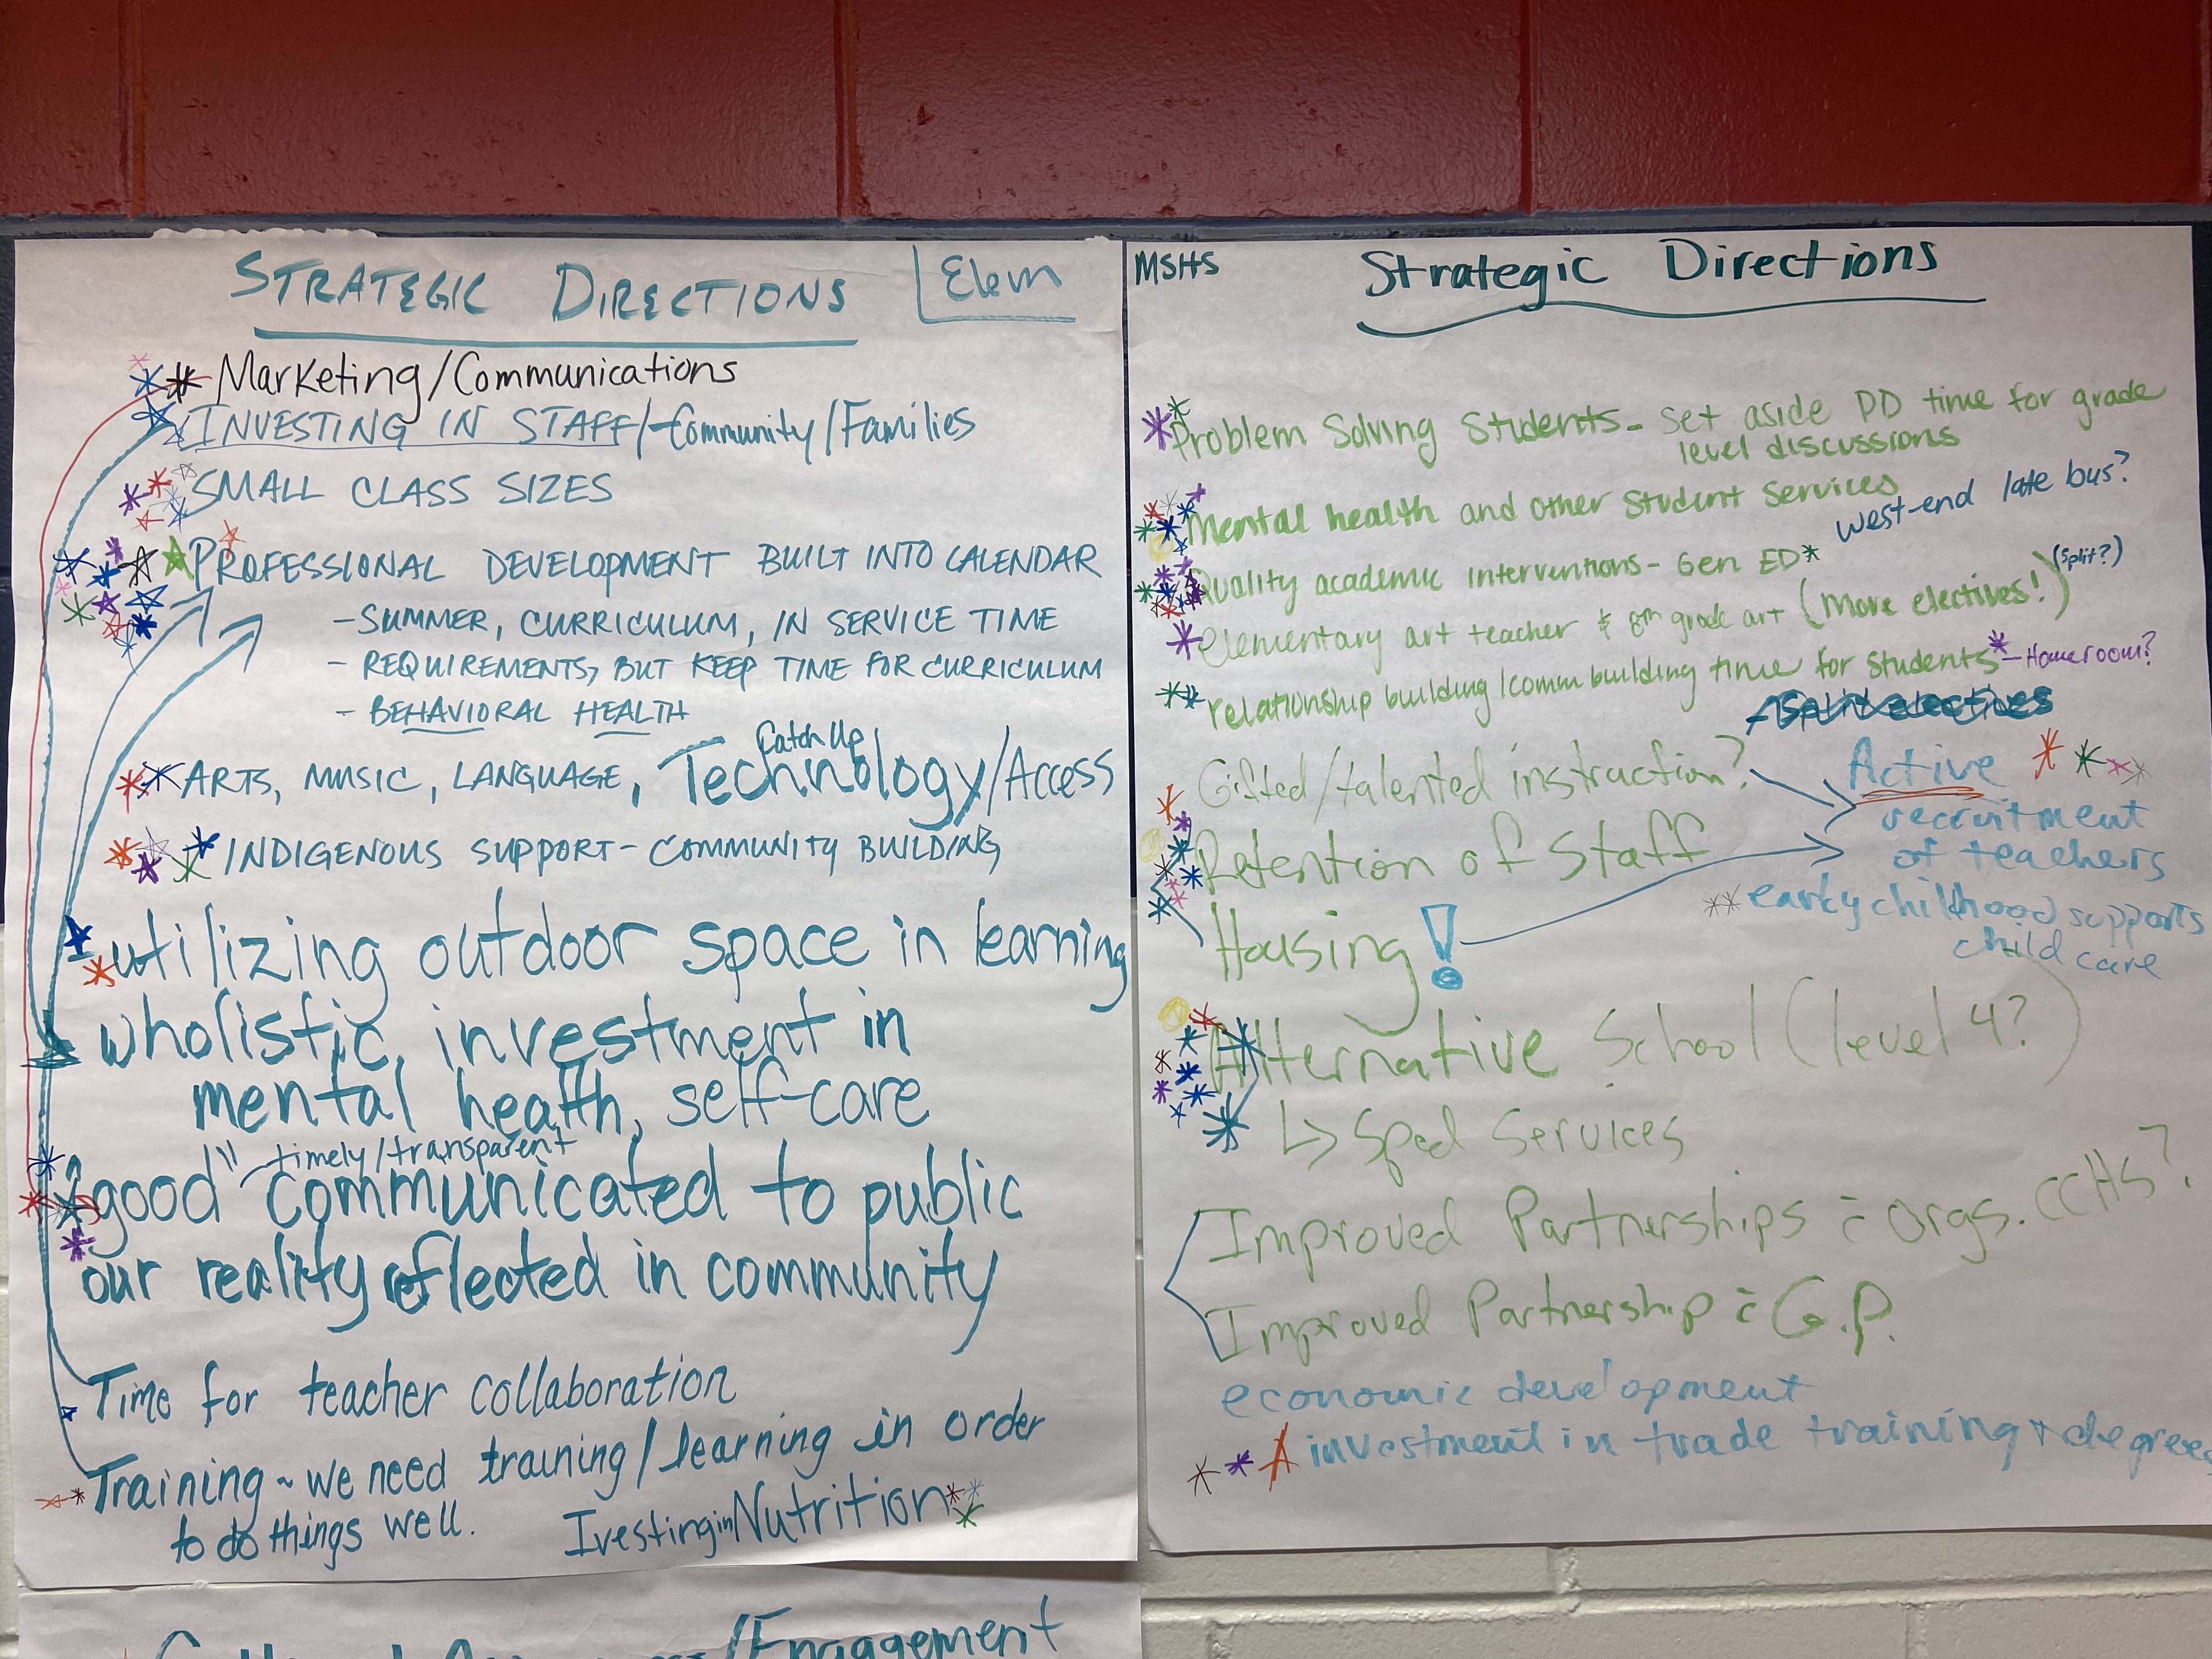 STRATEGIC DIRECTIONS
Elem
Marketing/Communications
INVESTING IN STAFF/Community/Families
SMALL CLASS SIZES
PROFESSIONAL DEVELOPMENT BUILT INTO CALENDAR
- SUMMER, CURRICULUM, IN SERVICE TIME
- REQUIREMENTS, BUT KEEP TIME FOR CURRICULUM
- BEHAVIORAL HEALTH
Catch Up
ARTS, MUSIC, LANGUAGE, Technology/Access
INDIGENOUS SUPPORT - COMMUNITY BUILDING
utilizing outdoor space in learning
wholistic, investment in
mental health, self-care
timely/transparent
"good" communicated to public
our reality reflected in community
Time for teacher collaboration
Training ~ we need training/learning in order
to do things well.
Ivesting in Nutrition
/Engagement
MSHS
Strategic Directions
Problem Solving Students - Set aside PD time for grade
level discussions
Mental health and other Student Services
west-end late bus?
Quality academic interventions - Gen ED
Elementary art teacher & 8th grade art (More electives!) (split?)
relationship building/comm building time for students - Homeroom?
- Split electives
Gifted/talented instruction?
Active
recruitment
of teachers
Retention of Staff
early childhood supports
child care
Housing!
Alternative School (level 4?)
↳ Sped Services
Improved Partnerships c̄ Orgs. CCHS?
Improved Partnership c̄ G.P.
economic development
investment in trade training + degrees